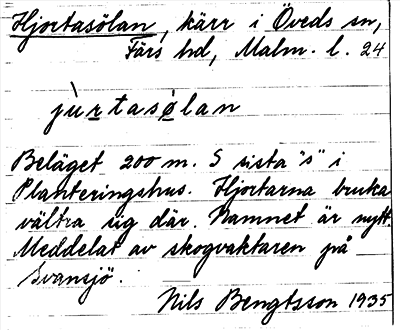 Hjortasölan, kärr i Öveds sn,
Färs hd, Malm. l. 24
jùrtasølan
Beläget 200 m. S sista "s" i
Planteringshus. Hjortarna bruka
vältra sig där. Namnet är nytt.
Meddelat av skogvaktaren på
Svansjö.
Nils Bengtsson 1935